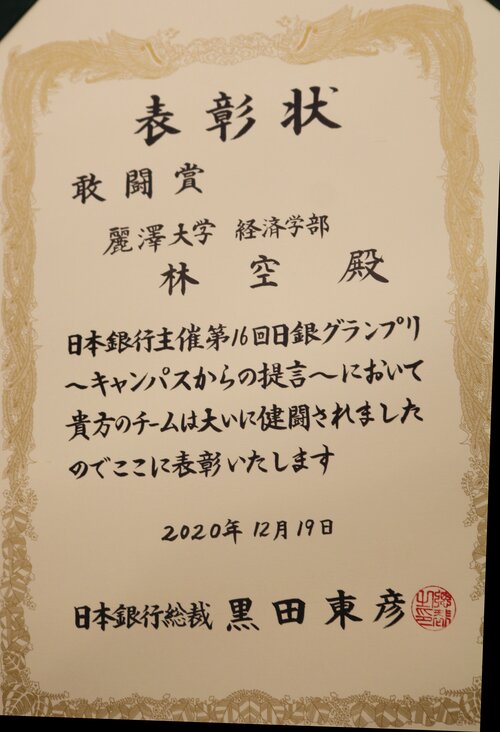 表彰状
敢闘賞
麗澤大学 経済学部
林 空 殿
日本銀行主催第16回日銀グランプリ
～キャンパスからの提言～において
貴方のチームは大いに健闘されました
のでここに表彰いたします
2020年12月19日
日本銀行総裁 黒田東彦